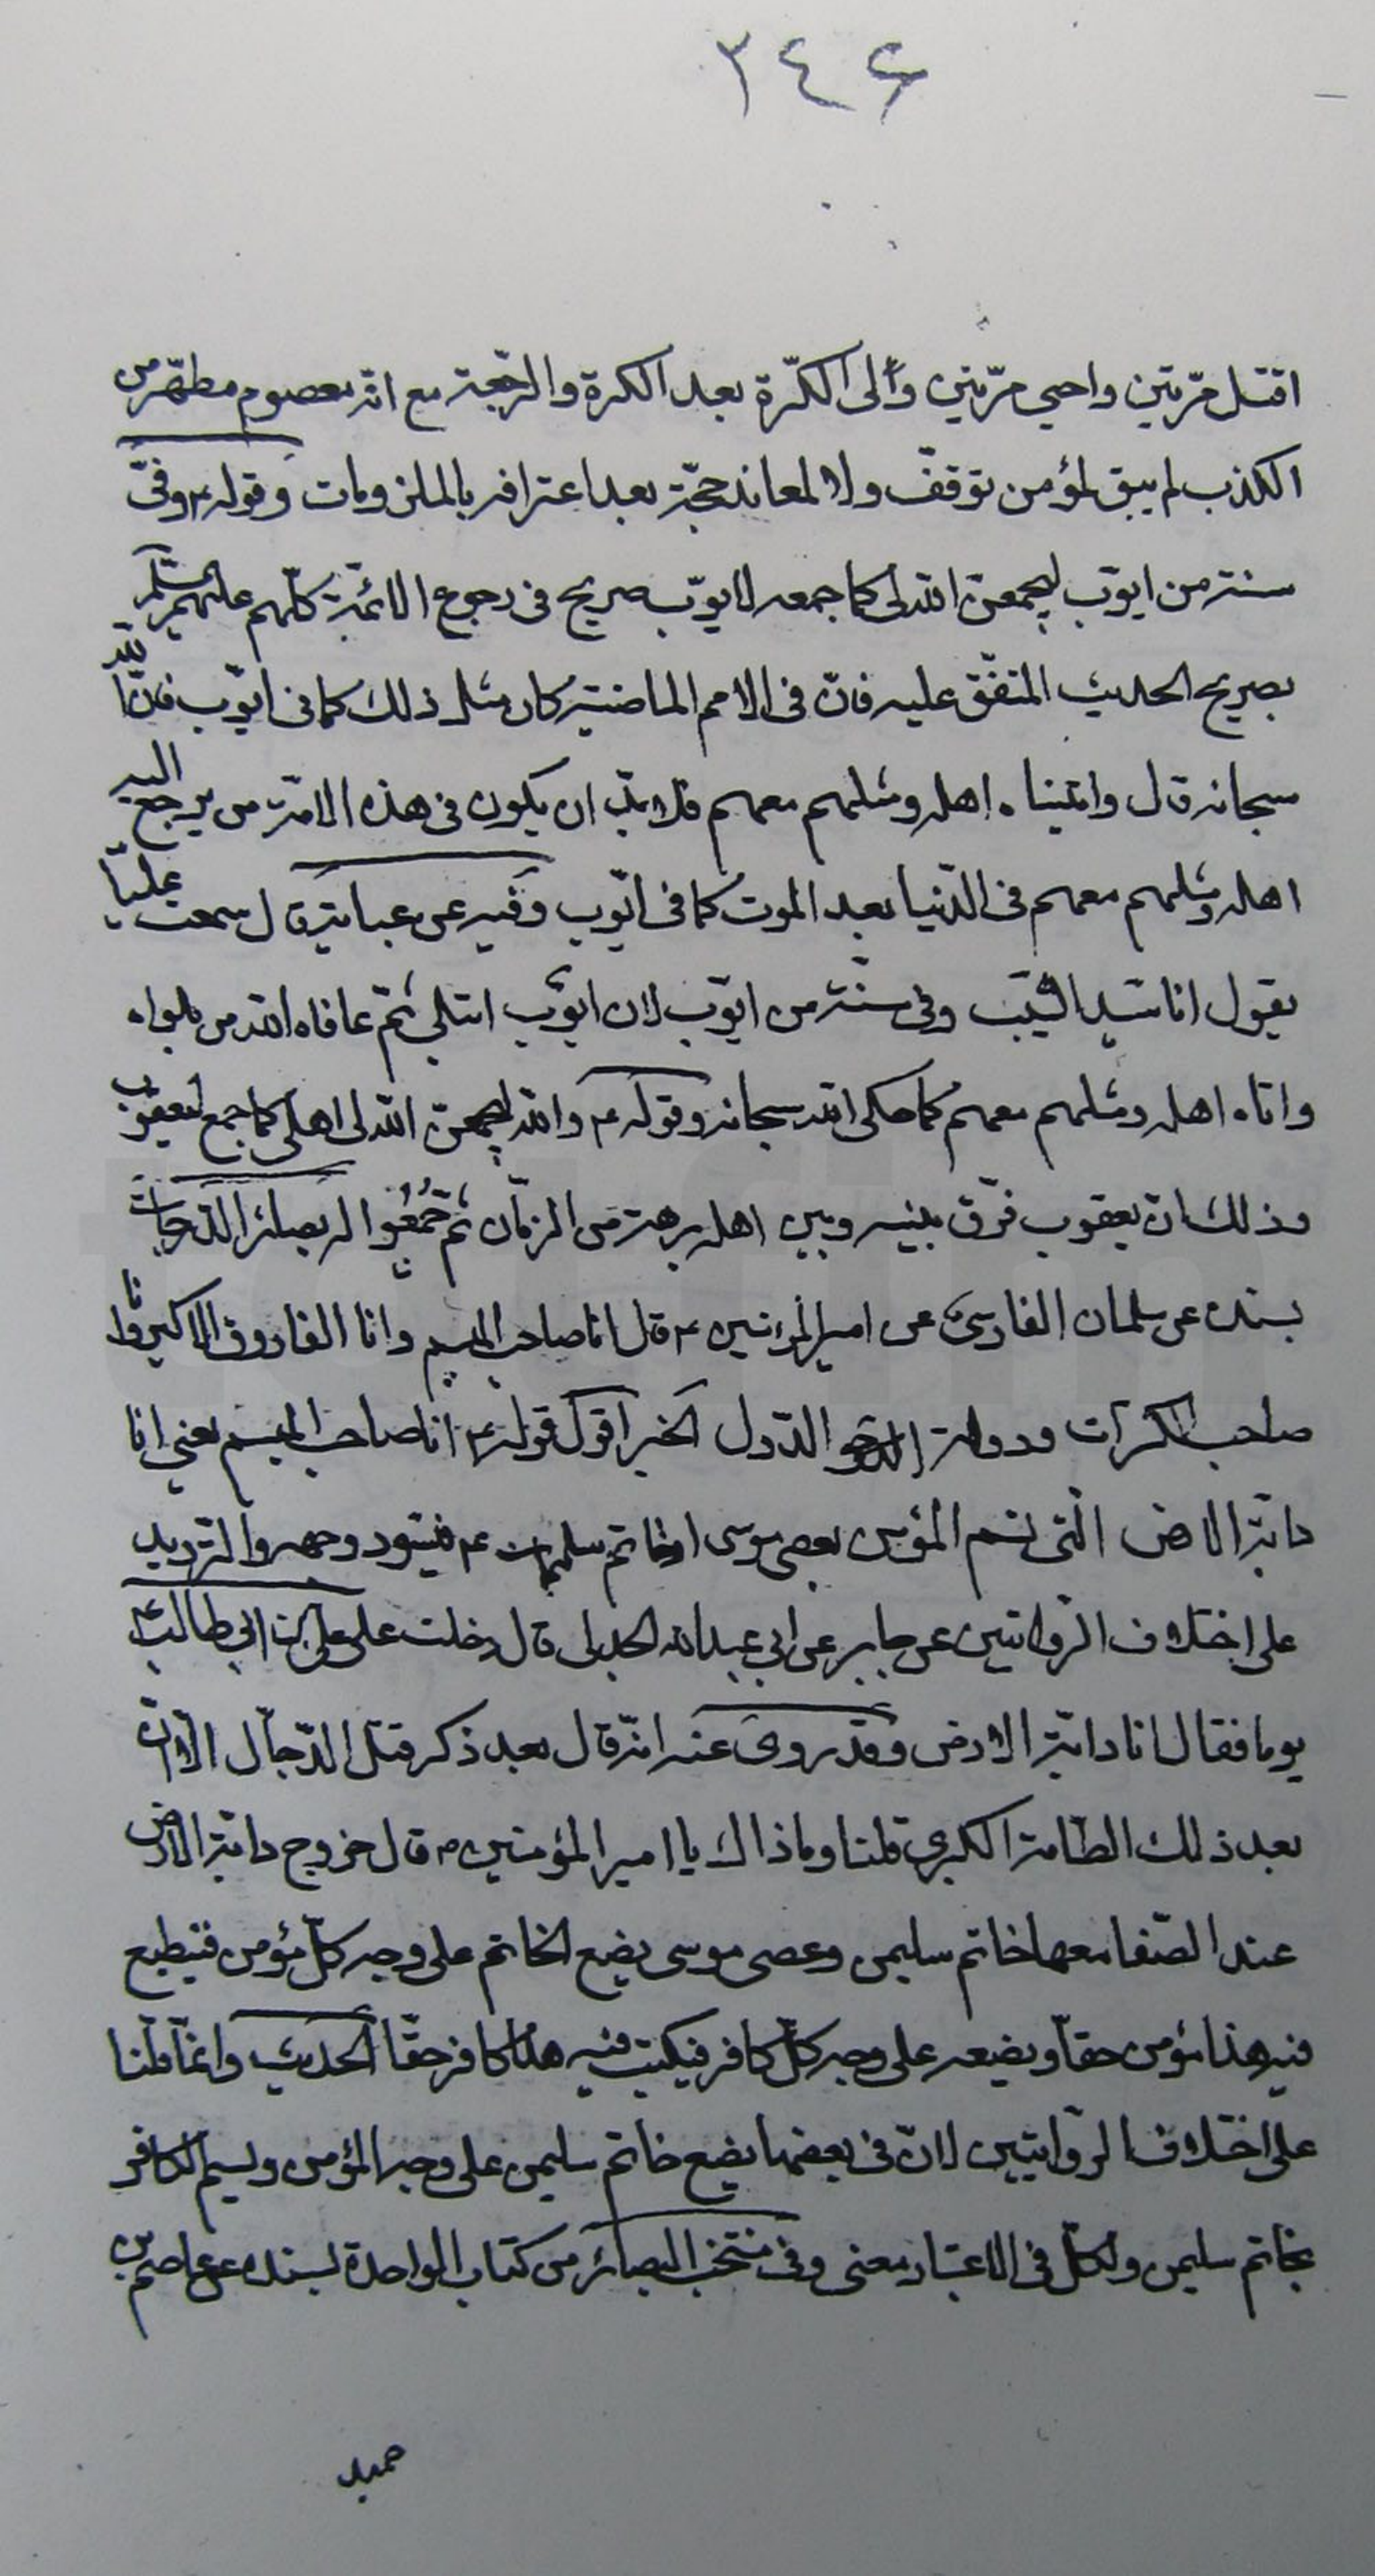 ٢٤٦
اقتل مرّتين واحيي مرّتين وألى الكرّة بعد الكرة والرّجعة مع انّه معصوم مطهّر من
الكذب لم يبق لمؤمن توقفّ ولا لمعاند حجّة بعد اعترافه بالملزومات وقوله ع وفيّ
سنة من ايوّب ليجمعنّ الله لى كما جمعه لايوّب صريح فى رجوع الائمّة كلّهم عليهم السّلام
بصريح الحديث المتفّق عليه فانّ فى الامم الماضية كان مثل ذلك كما فى ايوّب فانّ الله
سبحانه قال واتيناه اهله ومثلهم معهم فلا بدّ ان يكون فى هذه الامّة من يرجع اليه
اهله ومثلهم معهم فى الدّنيا بعد الموت كما فى ايّوب وفيه عن عباية قال سمعت عليّا
يقول انا سيد الشيّب وفى سنّة من ايوّب لان ايوّب ابتلى ثمّ عافاه الله من بلواه
واتاه اهله ومثلهم معهم كما حكى الله سبحانه وقوله ع والله ليجمعنّ الله لى اهلى كما جمع ليعقوب
وذلك انّ يعقوب فرّق بينه وبين اهله برهة من الزمّان ثمّ جُمِعُوا له بصائر الدّرجات
بسنده عن سلمان الفارسىّ عن امير المؤمنين ع قال انا صاحب الميسم وانا الفاروق الاكبر وانا
صاحب الكرّات ودولة الدّول الخبر اقول قوله ع انا صاحب الميسم يعنى انا
دابّة الارض الّتى تسم المؤمن بعصى موسى او خاتم سليمان ع فيسّود وجهه والترّديد
على اختلاف الرّوايتين عن جابر عن ابي عبدالله الجدلى قال دخلت على علىّ بن ابى طالب ع
يوما فقال انا دابّة الارض وقد روى عنه انّه قال بعد ذكر قتل الدّجاّل الا انّ
بعد ذلك الطاّمة الكبرى قلنا وما ذاك يا امير المؤمنين ع قال خروج دابّة الارض
عند الصّفا معها خاتم سليمن وعصى موسى يضع الخاتم على وجه كلّ مؤمن فيطبع
فيه هذا مؤمن حقّا ويضعه على وجه كلّ كافر فيكتب فيه هذا كافر حقّا الحديث وانمّا قلنا
على اختلاف الرّوايتين لانّ فى بعضها يضع خاتم سليمن على وجه المؤمن ويسم الكافر
بخاتم سليمن ولكلّ فى الاعتبار معنى وفى منتخب البصائر من كتاب الواحدة بسنده عن عاصم بن
حميد